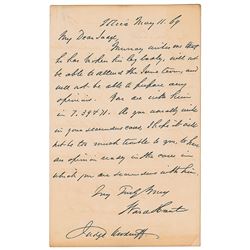 Utica May 11. 69
My Dear Judge,
Murray writes me that
he has broken his leg badly, will
not be able to attend the June term, and
will not be able to prepare any
opinions. You are with him
in 7. 39 & 11. As you usually write
in your causes I hope it will
not be too much trouble to you, to have
an opinion ready in the cases in
which you are with him.
Very Truly Yours
Ward Hunt
Judge Woodruff